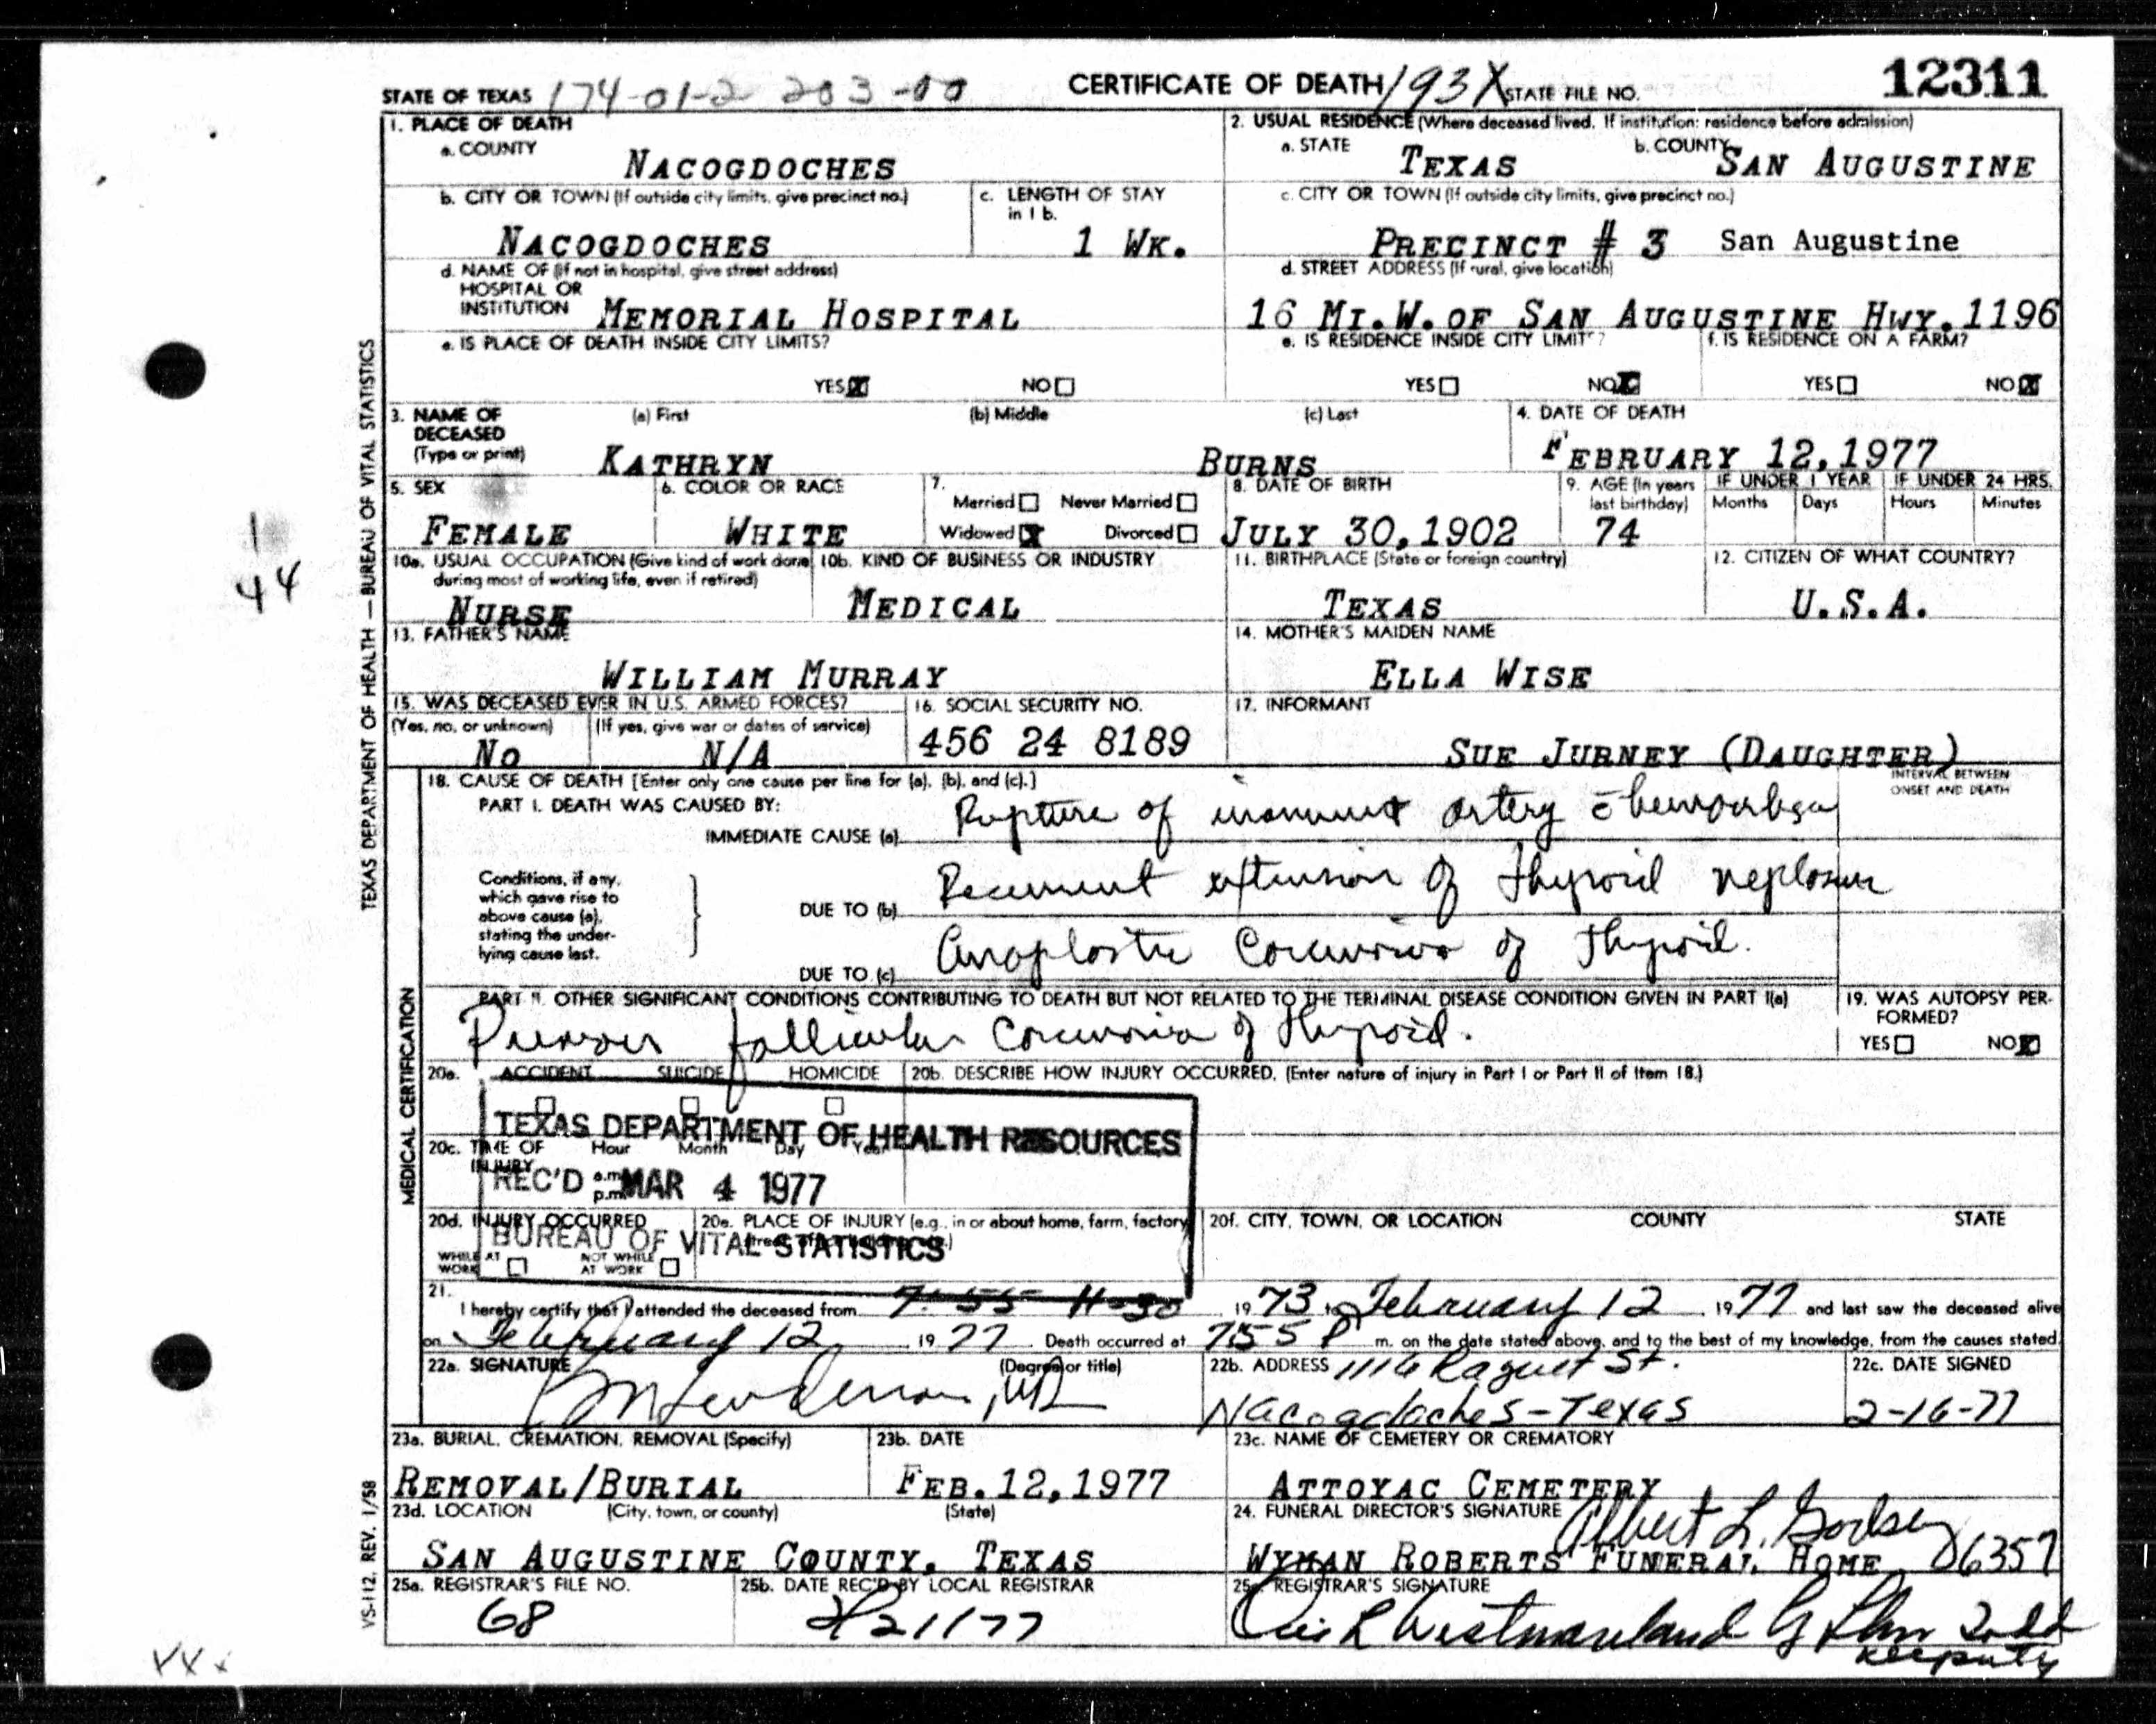 STATE OF TEXAS 174-01-2 203-00 CERTIFICATE OF DEATH 193X STATE FILE NO. 12311
1. PLACE OF DEATH
a. COUNTY
NACOGDOCHES
2. USUAL RESIDENCE (Where deceased lived. If institution: residence before admission)
a. STATE b. COUNTY
TEXAS SAN AUGUSTINE
b. CITY OR TOWN (If outside city limits, give precinct no.)
NACOGDOCHES
c. LENGTH OF STAY
in 1 b.
1 WK.
c. CITY OR TOWN (If outside city limits, give precinct no.)
PRECINCT # 3 San Augustine
d. NAME OF (If not in hospital, give street address)
HOSPITAL OR
INSTITUTION MEMORIAL HOSPITAL
d. STREET ADDRESS (If rural, give location)
16 MI.W.OF SAN AUGUSTINE HWY.1196
e. IS PLACE OF DEATH INSIDE CITY LIMITS?
YES X NO
e. IS RESIDENCE INSIDE CITY LIMITS?
YES NO X
f. IS RESIDENCE ON A FARM?
YES NO X
3. NAME OF
DECEASED
(Type or print)
(a) First (b) Middle (c) Last
KATHRYN BURNS
4. DATE OF DEATH
FEBRUARY 12,1977
5. SEX
FEMALE
6. COLOR OR RACE
WHITE
7.
Married Never Married
Widowed X Divorced
8. DATE OF BIRTH
JULY 30,1902
9. AGE (In years
last birthday)
74
IF UNDER 1 YEAR
Months Days
IF UNDER 24 HRS.
Hours Minutes
10a. USUAL OCCUPATION (Give kind of work done
during most of working life, even if retired)
NURSE
10b. KIND OF BUSINESS OR INDUSTRY
MEDICAL
11. BIRTHPLACE (State or foreign country)
TEXAS
12. CITIZEN OF WHAT COUNTRY?
U.S.A.
13. FATHER'S NAME
WILLIAM MURRAY
14. MOTHER'S MAIDEN NAME
ELLA WISE
15. WAS DECEASED EVER IN U.S. ARMED FORCES?
(Yes, no, or unknown) (If yes, give war or dates of service)
NO N/A
16. SOCIAL SECURITY NO.
456 24 8189
17. INFORMANT
SUE JURNEY (DAUGHTER)
18. CAUSE OF DEATH [Enter only one cause per line for (a), (b), and (c).]
INTERVAL BETWEEN
ONSET AND DEATH
PART I. DEATH WAS CAUSED BY:
IMMEDIATE CAUSE (a) Rupture of artery
Conditions, if any,
which gave rise to
above cause (a),
stating the under-
lying cause last.
DUE TO (b) extension of thyroid
DUE TO (c) Anaplastic Carcinoma of Thyroid.
PART II. OTHER SIGNIFICANT CONDITIONS CONTRIBUTING TO DEATH BUT NOT RELATED TO THE TERMINAL DISEASE CONDITION GIVEN IN PART I(a)
follicular Carcinoma of Thyroid.
19. WAS AUTOPSY PER-
FORMED?
YES NO X
20a. ACCIDENT SUICIDE HOMICIDE
20b. DESCRIBE HOW INJURY OCCURRED. (Enter nature of injury in Part I or Part II of Item 18.)
TEXAS DEPARTMENT OF HEALTH RESOURCES
20c. TIME OF Hour Month Day Year
INJURY
a.m.
p.m.
REC'D MAR 4 1977
BUREAU OF VITAL STATISTICS
20d. INJURY OCCURRED
WHILE AT
WORK
NOT WHILE
AT WORK
20e. PLACE OF INJURY (e.g., in or about home, farm, factory,
20f. CITY, TOWN, OR LOCATION COUNTY STATE
21.
I hereby certify that I attended the deceased from 1973 to February 12 1977 and last saw the deceased alive
on February 12 1977. Death occurred at 7:55 P m. on the date stated above, and to the best of my knowledge, from the causes stated.
22a. SIGNATURE (Degree or title)
22b. ADDRESS 1116 Raguet St.
Nacogdoches-Texas
22c. DATE SIGNED
2-16-77
23a. BURIAL, CREMATION, REMOVAL (Specify)
REMOVAL/BURIAL
23b. DATE
FEB.12,1977
23c. NAME OF CEMETERY OR CREMATORY
ATTOYAC CEMETERY
23d. LOCATION (City, town, or county) (State)
SAN AUGUSTINE COUNTY, TEXAS
24. FUNERAL DIRECTOR'S SIGNATURE
Albert L. Godsey 6357
WYMAN ROBERTS FUNERAL HOME
25a. REGISTRAR'S FILE NO.
68
25b. DATE REC'D BY LOCAL REGISTRAR
2/21/77
25c. REGISTRAR'S SIGNATURE
Todd
deputy
TEXAS DEPARTMENT OF HEALTH — BUREAU OF VITAL STATISTICS
MEDICAL CERTIFICATION
VS-112. REV. 1/58
1
44
XXx